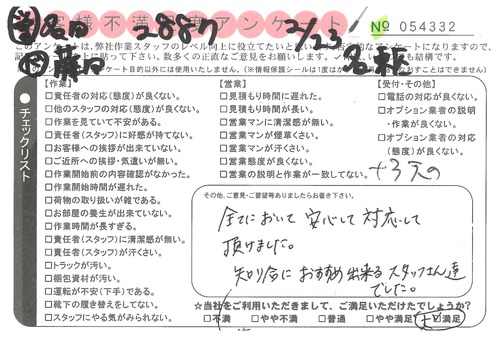 お客様不満足度アンケート
№ 054332
2887
2/23
このアンケートは、弊社作業スタッフのレベル向上に役立てたいと
数多くの正直なご意見をお願いします。
【作業】
□責任者の対応(態度)が良くない。
□他のスタッフの対応(態度)が良くない。
□作業を見ていて不安がある。
□責任者(スタッフ)に好感が持てない。
□お客様への挨拶が出来ていない。
□ご近所への挨拶・気遣いが無い。
□作業開始前の内容確認がなかった。
□作業開始時間が遅れた。
□荷物の取り扱いが雑である。
□お部屋の養生が出来ていない。
□作業時間が長すぎる。
□責任者(スタッフ)に清潔感が無い。
□責任者(スタッフ)が汗くさい。
□トラックが汚い。
□梱包資材が汚い。
□運転が不安(下手)である。
□靴下の履き替えをしてない。
□スタッフにやる気がみられない。
チェックリスト
【営業】
□見積もり時間に遅れた。
□見積もり時間が長い。
□営業マンに清潔感が無い。
□営業マンが煙草くさい。
□営業マンが汗くさい。
□営業態度が良くない。
□営業の説明と作業が一致してない。
【受付・その他】
□電話の対応が良くない。
□オプション業者の説明
・作業が良くない。
□オプション業者の対応
(態度)が良くない。
その他、ご意見・ご要望等ありましたらお書き下さい。
全てにおいて 安心して 対応して
頂けました。
知り合いに おすすめ 出来る スタッフさん達
でした。
☆当社をご利用いただきまして、ご満足いただけたでしょうか?
□不満 □やや不満 □普通 □やや満足 □大満足